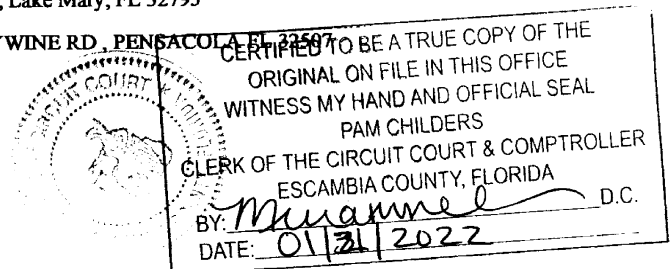 , Lake Mary, FL 32795
YWINE RD , PENSACOLA FL 32507
CERTIFIED TO BE A TRUE COPY OF THE
ORIGINAL ON FILE IN THIS OFFICE
WITNESS MY HAND AND OFFICIAL SEAL
PAM CHILDERS
CLERK OF THE CIRCUIT COURT & COMPTROLLER
ESCAMBIA COUNTY, FLORIDA
BY: D.C.
DATE: 01|31|2022
CIRCUIT COURT &